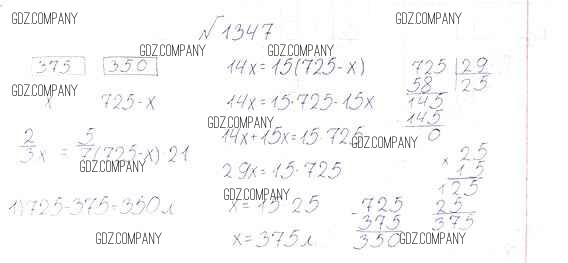 GDZ.COMPANY
GDZ.COMPANY
№1347
GDZ.COMPANY
GDZ.COMPANY
375 350
14x=15(725-x)
725 29
GDZ.COMPANY
x 725-x
14x=15·725-15x
58 25
145
GDZ.COMPANY
145
0
14x+15x=15·725
GDZ.COMPANY
2/3 x = 5/7(725-x)·21
GDZ.COMPANY
29x=15·725
×25
15
125
25
375
GDZ.COMPANY
1) 725-375=350л
x=15·25
-725
375
350
GDZ.COMPANY
x=375л
GDZ.COMPANY